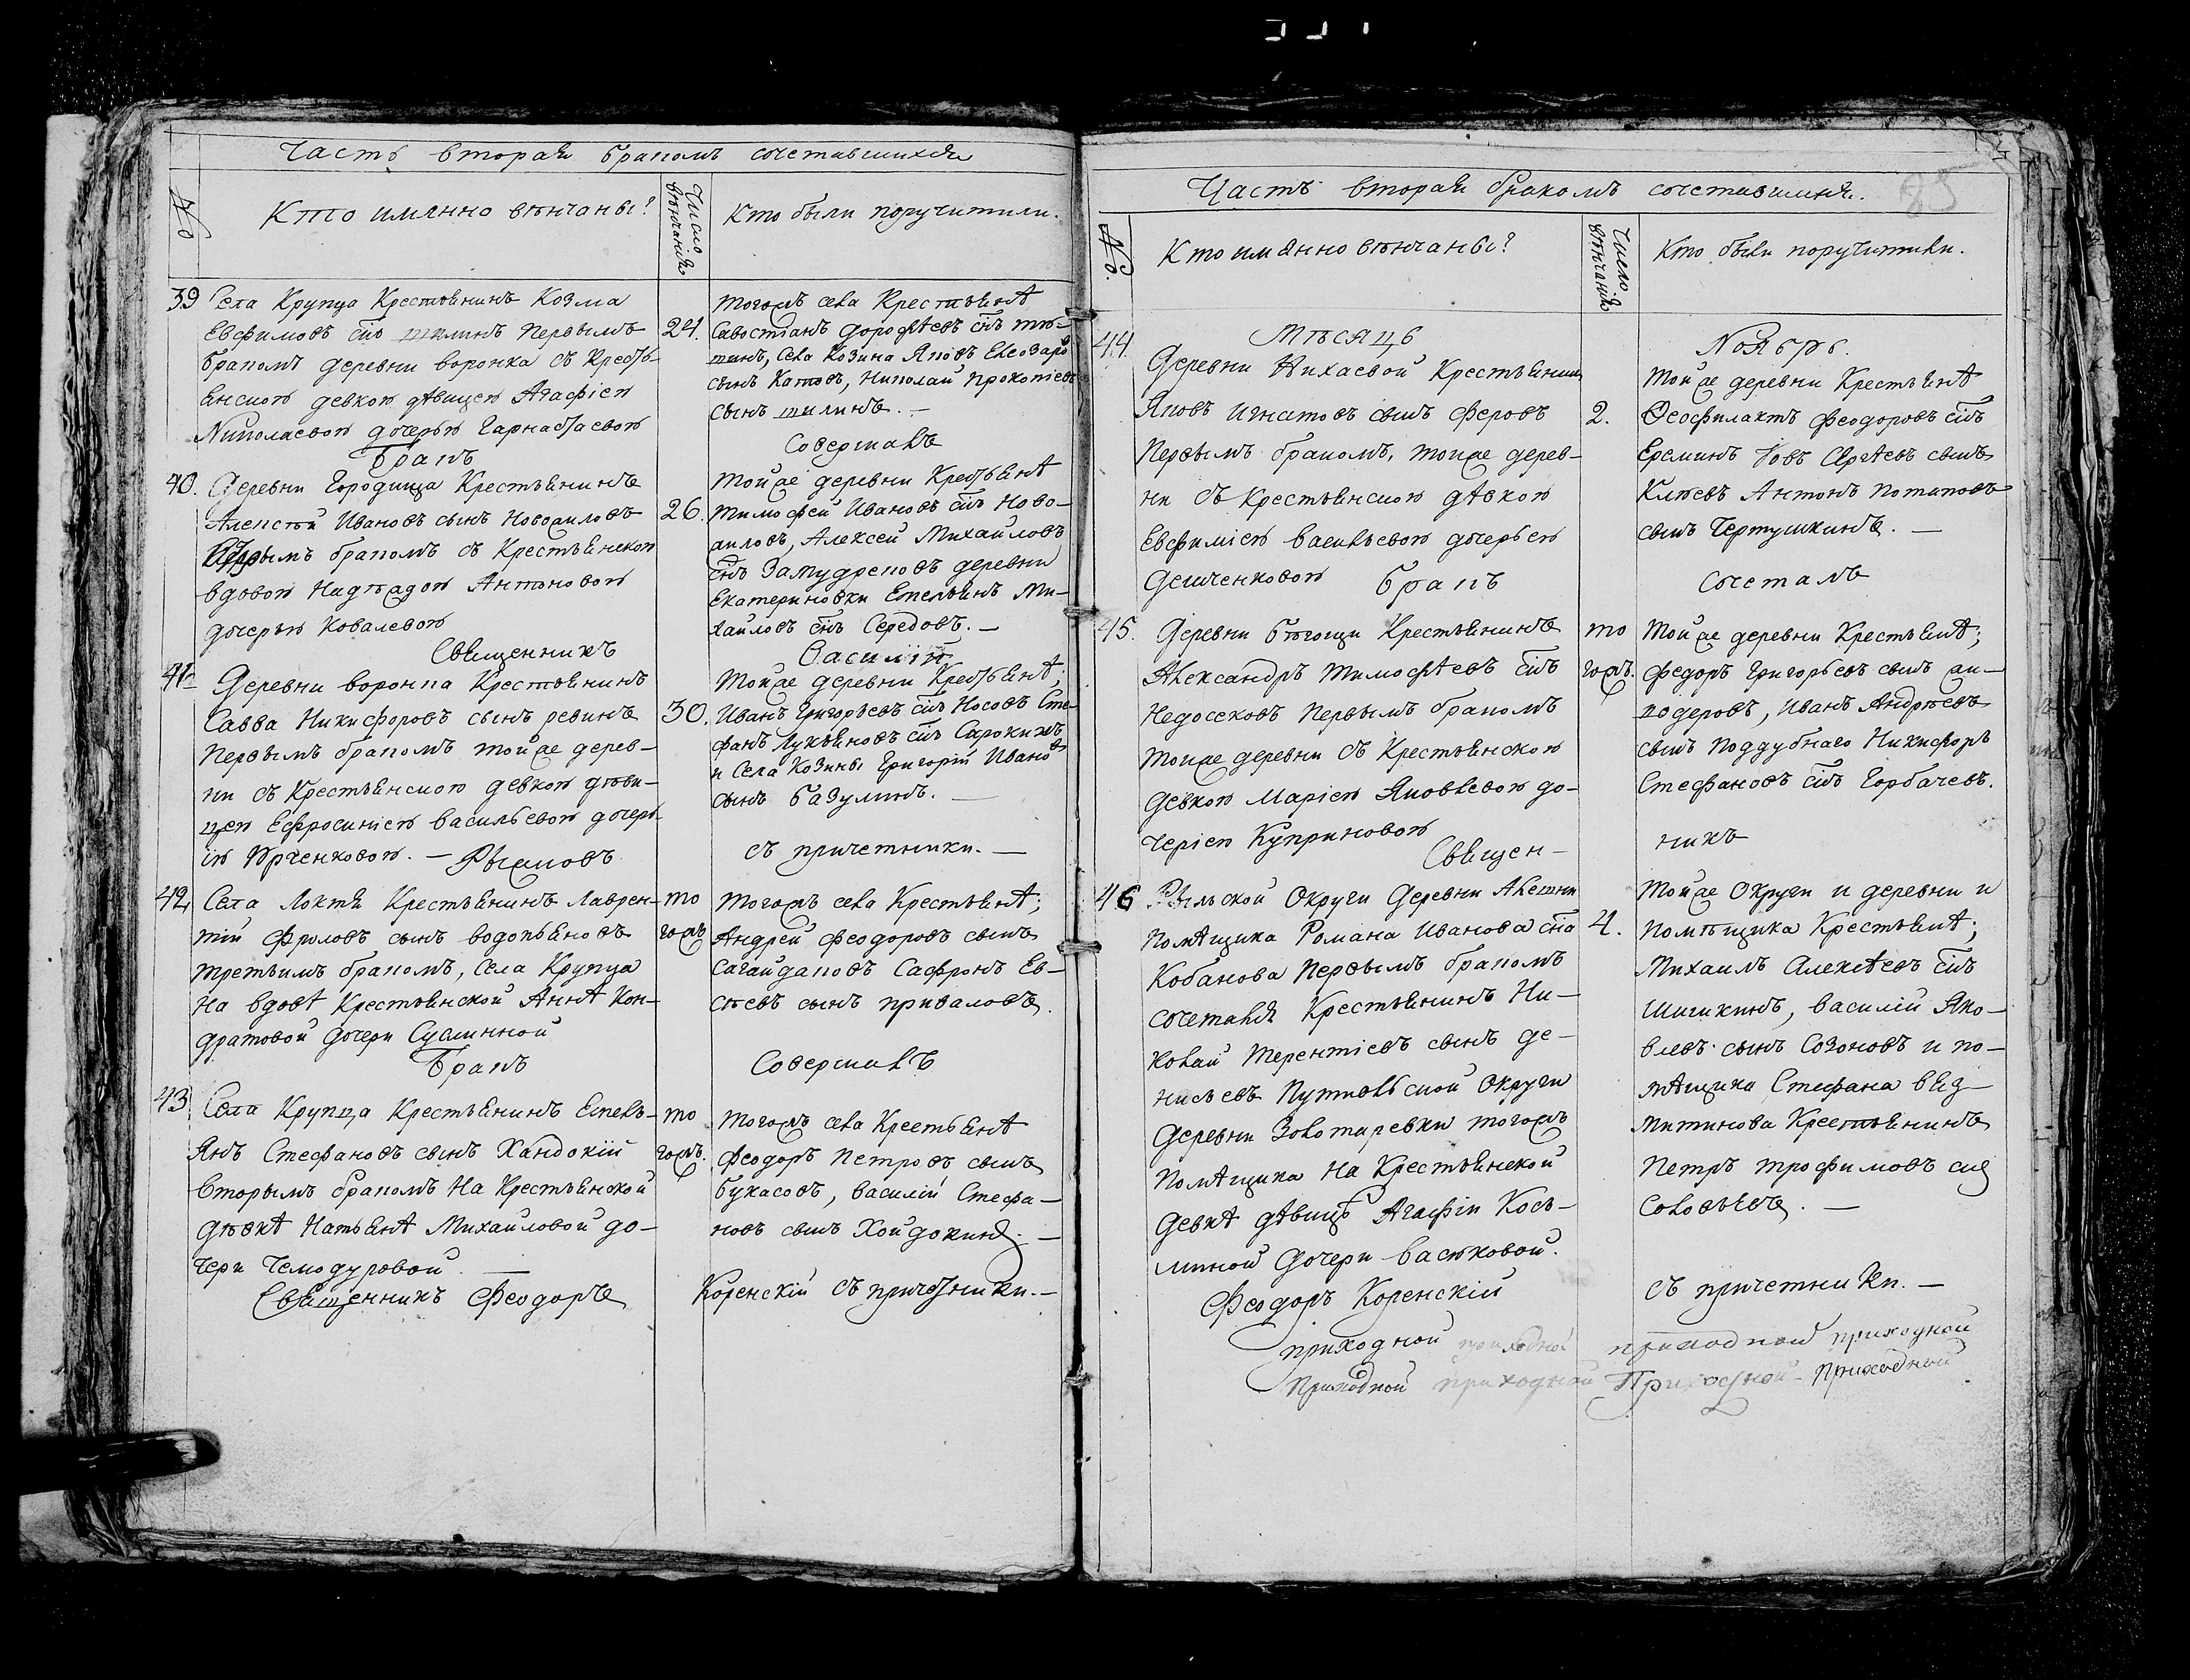 Часть вторая бракомъ сочетавшихся
№
Кто имянно вѣнчаны?
Число вѣнчанія
Кто были поручители.
39
Села Крупца Крестьянинъ Козма
Евфимовъ снъ шилинъ Первымъ
бракомъ деревни воронка съ Крестья-
янскою девкою дѣвицею Агафіею
Николаевою дочерью Гарнастаевою
24.
тогожъ села Крестьянѣ
Савостіанъ дорофѣевъ снъ тю-
тинъ, Села Козина Яковъ Елеозаро
сынъ Катовъ, Николай прокопіевъ
сынъ шилинъ. —
Бракъ
Совершалъ
40.
Деревни Городища Крестьянинъ
Алексѣй Ивановъ сынъ Новожиловъ
Первымъ бракомъ съ Крестьянскою
вдовою Надѣждою Антоновою
дочерью Ковалевою
26.
тойже деревни Крестьянѣ
тимофей Ивановъ снъ Ново-
жиловъ, Алексей Михайловъ
снъ Замудреновъ деревни
Екатериновки Емельянъ Ми-
хайловъ снъ Середовъ. —
Священникъ
Василій
41
Деревни воронка Крестьянинъ
Савва Никифоровъ сынъ ревинъ
Первымъ бракомъ тойже дерев-
ни съ Крестьянскою девкою дѣви-
цею Ефросиніею васильевою дочерь-
ію Юрченковою. — Рыжковъ
30.
тойже деревни Крестьянѣ;
Иванъ Григорьевъ снъ Носовъ Сте-
фанъ Лукьяновъ снъ Сарокинъ
и Села Козины Григорій Иванов
сынъ базулинъ. —
съ причетники. —
42
Села Локтя Крестьянинъ Лаврен-
тій Фроловъ сынъ водопьяновъ
третьимъ бракомъ, Села Крупца
на вдовѣ Крестьянской Аннѣ Кон-
дратовой дочери Суслинной
то
гожъ
тогожъ села Крестьянѣ;
Андрей Феодоровъ сынъ
Сагайдаковъ Сафронъ Ев-
сѣевъ сынъ приваловъ.
Бракъ
Совершалъ
43
Села Крупца Крестьянинъ Емель-
янъ Стефановъ сынъ Хандокій
вторымъ бракомъ на Крестьянской
дѣвкѣ Натьянѣ Михайловой до-
чери Чемодуровой. —
то
гожъ.
тогожъ села Крестьянѣ
Феодоръ Петровъ сынъ
Букасовъ, василій Стефа-
новъ сынъ Хойдокинъ. —
Священникъ Феодоръ
Коренскій съ причетники. —
Часть вторая бракомъ сочетавшихся.
№.
Кто имянно вѣнчаны?
Число вѣнчанія
Кто были поручители.
Мѣсяцъ
Ноябрь.
44.
Деревни Нихаевой Крестьянинъ
Яковъ игнатовъ сынъ Феровъ
Первымъ бракомъ, тойже дерев-
ни съ Крестьянскою дѣвкою
Евфиміею васильевою дочерьею
Демченковою
2.
тойже деревни Крестьянѣ
Феофилактъ Феодоровъ снъ
Ереминъ Іовъ Сергѣевъ сынъ
Клюевъ Антонъ потаповъ
сынъ Чертушкинъ. —
Бракъ
сочеталъ
45.
Деревни бѣгощи Крестьянинъ
Александръ тимофѣевъ снъ
Недосековъ Первымъ бракомъ
тойже деревни съ Крестьянскою
девкою Маріею Яковлевою до-
черіею Куприновою
то
гожъ.
тойже деревни Крестьянѣ;
Федоръ Григорьевъ сынъ жи-
водеровъ, Иванъ Андрѣевъ
сынъ поддубнаго Никифоръ
Стефановъ снъ Горбачевъ.
Священ-
никъ
46
Рыльской Округи Деревни Алешни
помѣщика Романа Иванова сна
Кобанова Первымъ бракомъ
сочетался Крестьянинъ Ни-
колай терентіевъ сынъ де-
нисьевъ Путивльской Округи
Деревни Золотаревки тогожъ
помѣщика на Крестьянской
девкѣ дѣвицѣ Агафіи Козь-
миной дочери васюковой.
4.
тойже Округи и деревни и
помѣщика Крестьянѣ;
Михаилъ Алексѣевъ снъ
Шигикинъ, василій Яко-
влевъ сынъ Созоновъ и по-
мѣщика Стефана вѣд-
митинова Крестьянинъ
Петръ трофимовъ сы
Соловьевъ. —
Феодоръ Коренскій
съ причетники. —
приходной приходной приходной приходной
Приходной приходной Приходной приходной